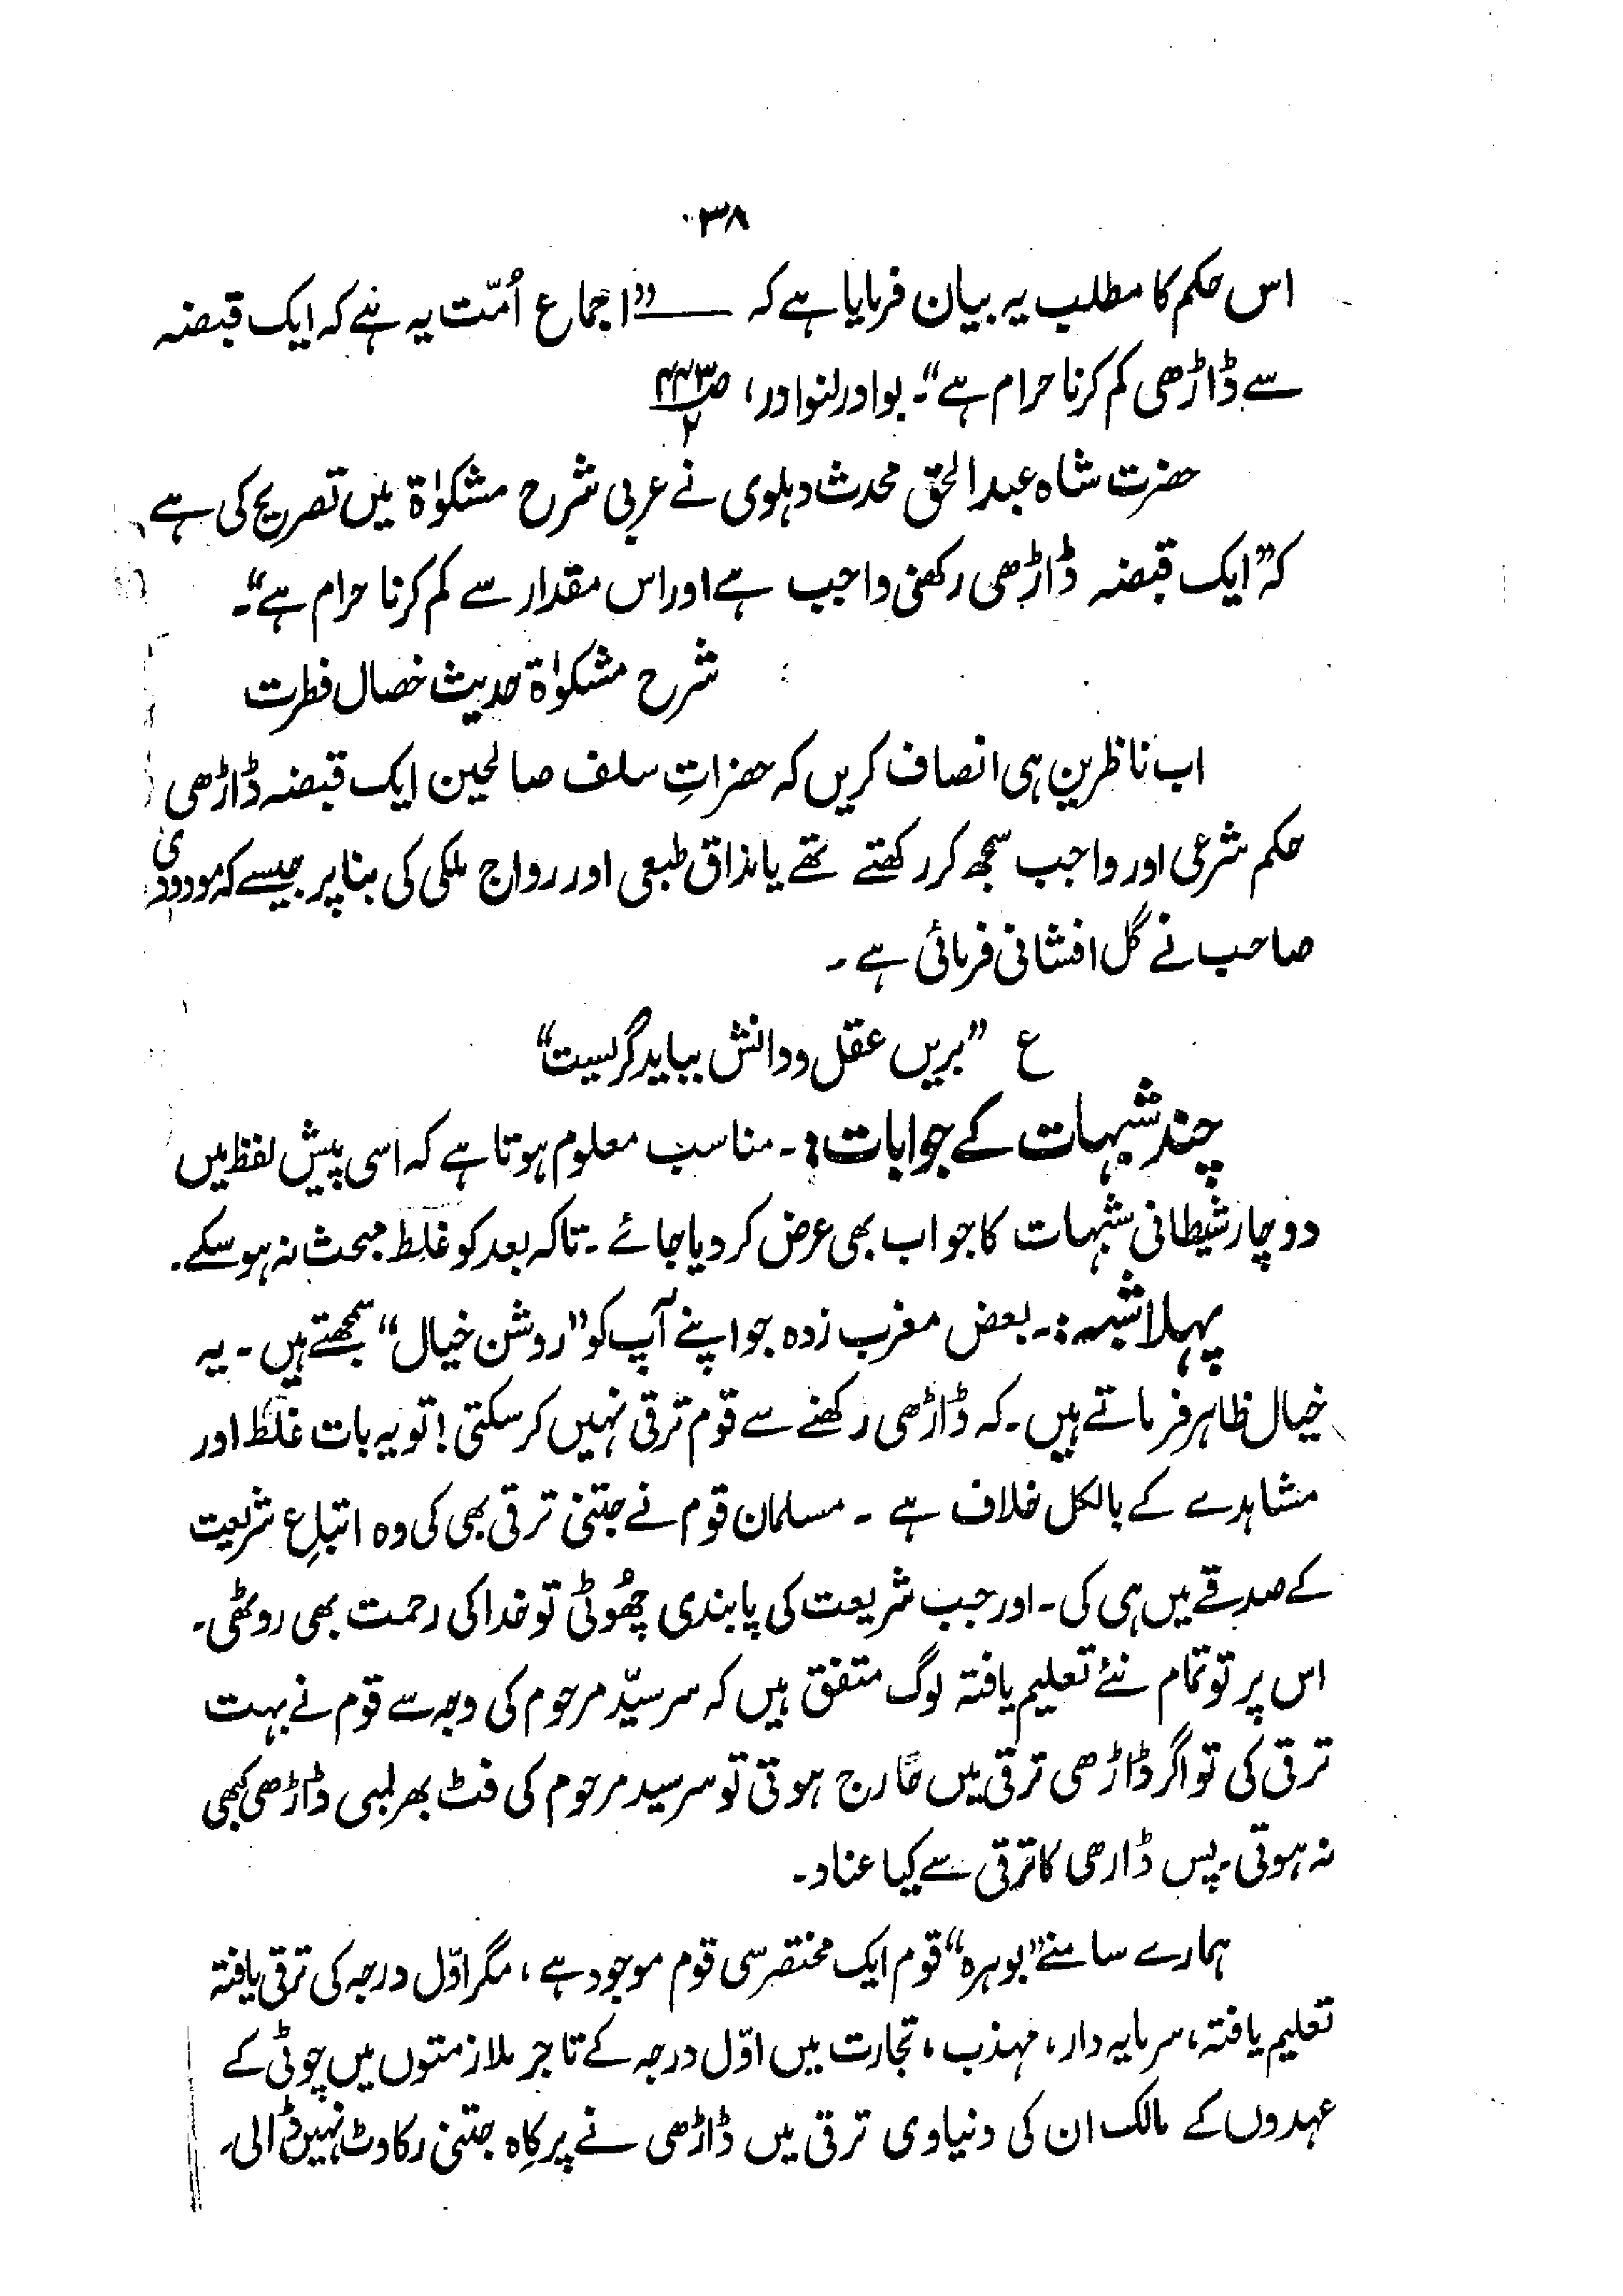 ۳۸
اس حکم کا مطلب یہ بیان فرمایا ہے کہ ــــ ”اجماع اُمّت یہ ہے کہ ایک قبضہ
سے ڈاڑھی کم کرنا حرام ہے“۔ بوادر لنوادر، ص۴۴۳/۲
حضرت شاہ عبدالحق محدث دہلوی نے عربی شرح مشکوٰۃ میں تصریح کی ہے
کہ ”ایک قبضہ ڈاڑھی رکھنی واجب ہے اور اس مقدار سے کم کرنا حرام ہے“۔
شرح مشکوٰۃ حدیث خصال فطرت
اب ناظرین ہی انصاف کریں کہ حضراتِ سلف صالحین ایک قبضہ ڈاڑھی
حکم شرعی اور واجب سمجھ کر رکھتے تھے یا مذاق طبعی اور رواج ملکی کی بنا پر جیسے کہ مودودی
صاحب نے گل افشانی فرمائی ہے ۔
ع ”بریں عقل و دانش بباید گریست“
چند شبہات کے جوابات:۔ مناسب معلوم ہوتا ہے کہ اسی پیش لفظ میں
دو چار شیطانی شبہات کا جواب بھی عرض کر دیا جائے ۔ تاکہ بعد کو غلط مبحث نہ ہو سکے۔
پہلا شبہ:۔ بعض مغرب زدہ جو اپنے آپ کو ”روشن خیال“ سمجھتے ہیں ۔ یہ
خیال ظاہر فرماتے ہیں۔ کہ ڈاڑھی رکھنے سے قوم ترقی نہیں کر سکتی! تو یہ بات غلط اور
مشاہدے کے بالکل خلاف ہے ۔ مسلمان قوم نے جتنی ترقی بھی کی وہ اتباعِ شریعت
کے صدقے میں ہی کی۔ اور جب شریعت کی پابندی چھُوٹی تو خدا کی رحمت بھی روٹھی۔
اس پر تو تمام نئے تعلیم یافتہ لوگ متفق ہیں کہ سر سیّد مرحوم کی وجہ سے قوم نے بہت
ترقی کی تو اگر ڈاڑھی ترقی میں حارج ہوتی تو سرسید مرحوم کی فٹ بھر لمبی ڈاڑھی کبھی
نہ ہوتی۔ پس ڈارھی کا ترقی سے کیا عناد۔
ہمارے سامنے ”بوہرہ“ قوم ایک مختصر سی قوم موجود ہے، مگر اوّل درجہ کی ترقی یافتہ
تعلیم یافتہ، سرمایہ دار، مہذب، تجارت میں اوّل درجہ کے تاجر ملازمتوں میں چوٹی کے
عہدوں کے مالک ان کی دنیاوی ترقی میں ڈاڑھی نے پرکاہ جتنی رکاوٹ نہیں ڈالی۔